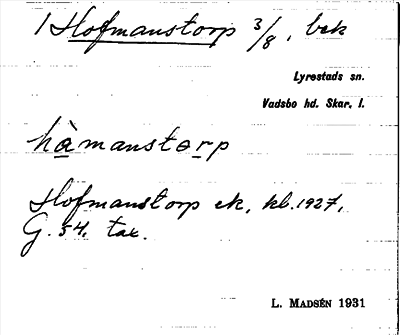 1 Hofmanstorp 3/8, bek
Lyrestads sn.
Vadsbo hd. Skar. l.
hàmanstorp
Hofmanstorp ek, kb. 1927,
G. 54. tax.
L. MADSÉN 1931